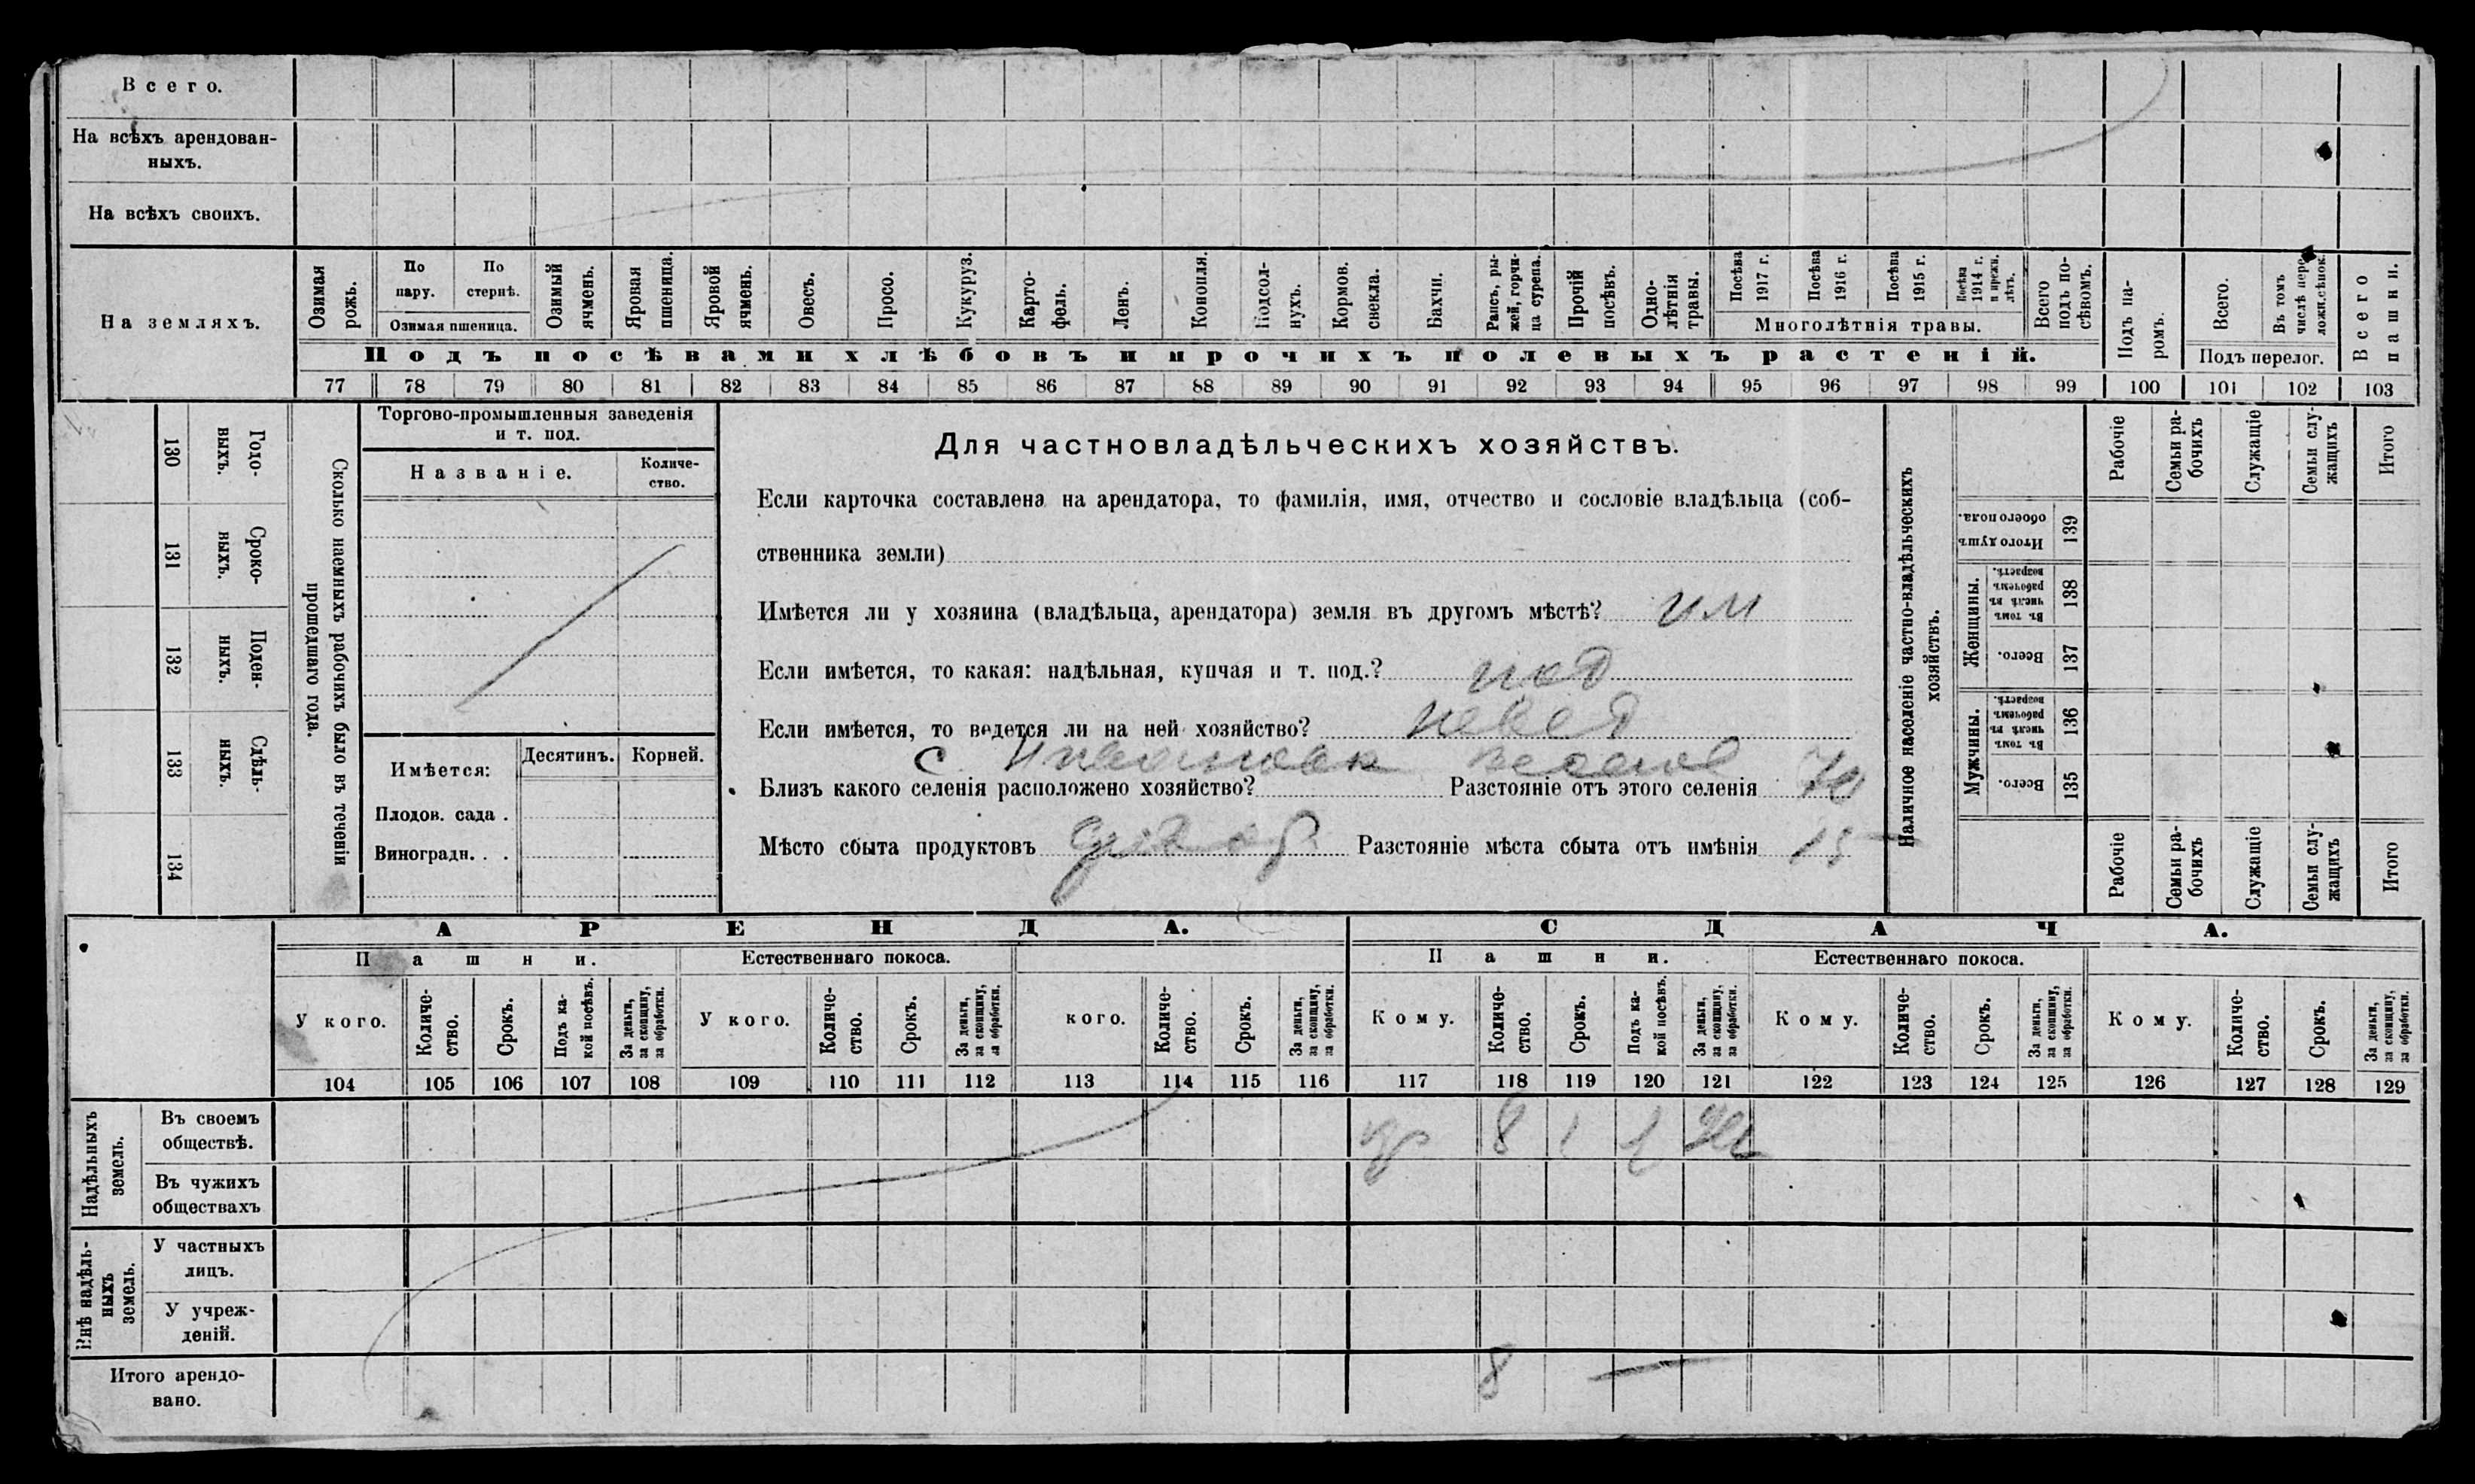 Всего.
На всѣхъ арендован-
ныхъ.
На всѣхъ своихъ.
На земляхъ.
Озимая рожь.
По пару.
По стернѣ.
Озимая пшеница.
Озимый ячмень.
Яровая пшеница.
Яровой ячмень.
Овесъ.
Просо.
Кукуруз.
Карто-
фель.
Ленъ.
Конопля.
Подсол-
нухъ.
Кормов. свекла.
Бахчи.
Рапсъ, ры-
жей, горчи-
ца сурепа.
Прочій посѣвъ.
Одно-
лѣтнія травы.
Посѣва 1917 г.
Посѣва 1916 г.
Посѣва 1915 г.
Посѣва 1914 г. и прежн. лѣтъ.
Многолѣтнія травы.
Всего подъ по-
сѣвомъ.
Подъ па-
ромъ.
Всего.
Въ томъ числѣ пере-
ложн. сѣнок.
Подъ перелог.
Всего пашни.
Подъ посѣвами хлѣбовъ и прочихъ полевыхъ растеній.
77 78 79 80 81 82 83 84 85 86 87 88 89 90 91 92 93 94 95 96 97 98 99 100 101 102 103
130 Годо-
выхъ.
131 Сроко-
ныхъ.
132 Поден-
ныхъ.
133 Сдѣль-
ныхъ.
134
Сколько наемныхъ рабочихъ было въ теченіи
прошедшаго года.
Торгово-промышленныя заведенія
и т. под.
Названіе.
Количе-
ство.
Имѣется:
Десятинъ.
Корней.
Плодов. сада .
Виноградн. . .
Для частновладѣльческихъ хозяйствъ.
Если карточка составлена на арендатора, то фамилія, имя, отчество и сословіе владѣльца (соб-
ственника земли)
Имѣется ли у хозяина (владѣльца, арендатора) земля въ другомъ мѣстѣ? им
Если имѣется, то какая: надѣльная, купчая и т. под.?
Если имѣется, то ведется ли на ней хозяйство?
с.
Близъ какого селенія расположено хозяйство? Разстояніе отъ этого селенія
Мѣсто сбыта продуктовъ Разстояніе мѣста сбыта отъ имѣнія 15
Наличное населеніе частно-владѣльческихъ
хозяйствъ.
Рабочіе
Семьи ра-
бочихъ
Служащіе
Семьи слу-
жащихъ
Итого
Итого душъ обоего пола. 139
Женщины.
Въ томъ числѣ въ рабочемъ возрастѣ. 138
Всего. 137
Мужчины.
Въ томъ числѣ въ рабочемъ возрастѣ. 136
Всего. 135
Рабочіе
Семьи ра-
бочихъ
Служащіе
Семьи слу-
жащихъ
Итого
АРЕНДА.
СДАЧА.
Пашни.
Естественнаго покоса.
Пашни.
Естественнаго покоса.
У кого.
Количе-
ство.
Срокъ.
Подъ ка-
кой посѣвъ.
За деньги, за скопщину, за обработки.
У кого.
Количе-
ство.
Срокъ.
За деньги, за скопщину, за обработки.
кого.
Количе-
ство.
Срокъ.
За деньги, за скопщину, за обработки.
Кому.
Количе-
ство.
Срокъ.
Подъ ка-
кой посѣвъ.
За деньги, за скопщину, за обработки.
Кому.
Количе-
ство.
Срокъ.
За деньги, за скопщину, за обработки.
Кому.
Количе-
ство.
Срокъ.
За деньги, за скопщину, за обработки.
104 105 106 107 108 109 110 111 112 113 114 115 116 117 118 119 120 121 122 123 124 125 126 127 128 129
Надѣльныхъ земель.
Въ своемъ
обществѣ.
8 1
Въ чужихъ
обществахъ
Внѣ надѣль-
ныхъ земель.
У частныхъ
лицъ.
У учреж-
деній.
Итого арендо-
вано.
8